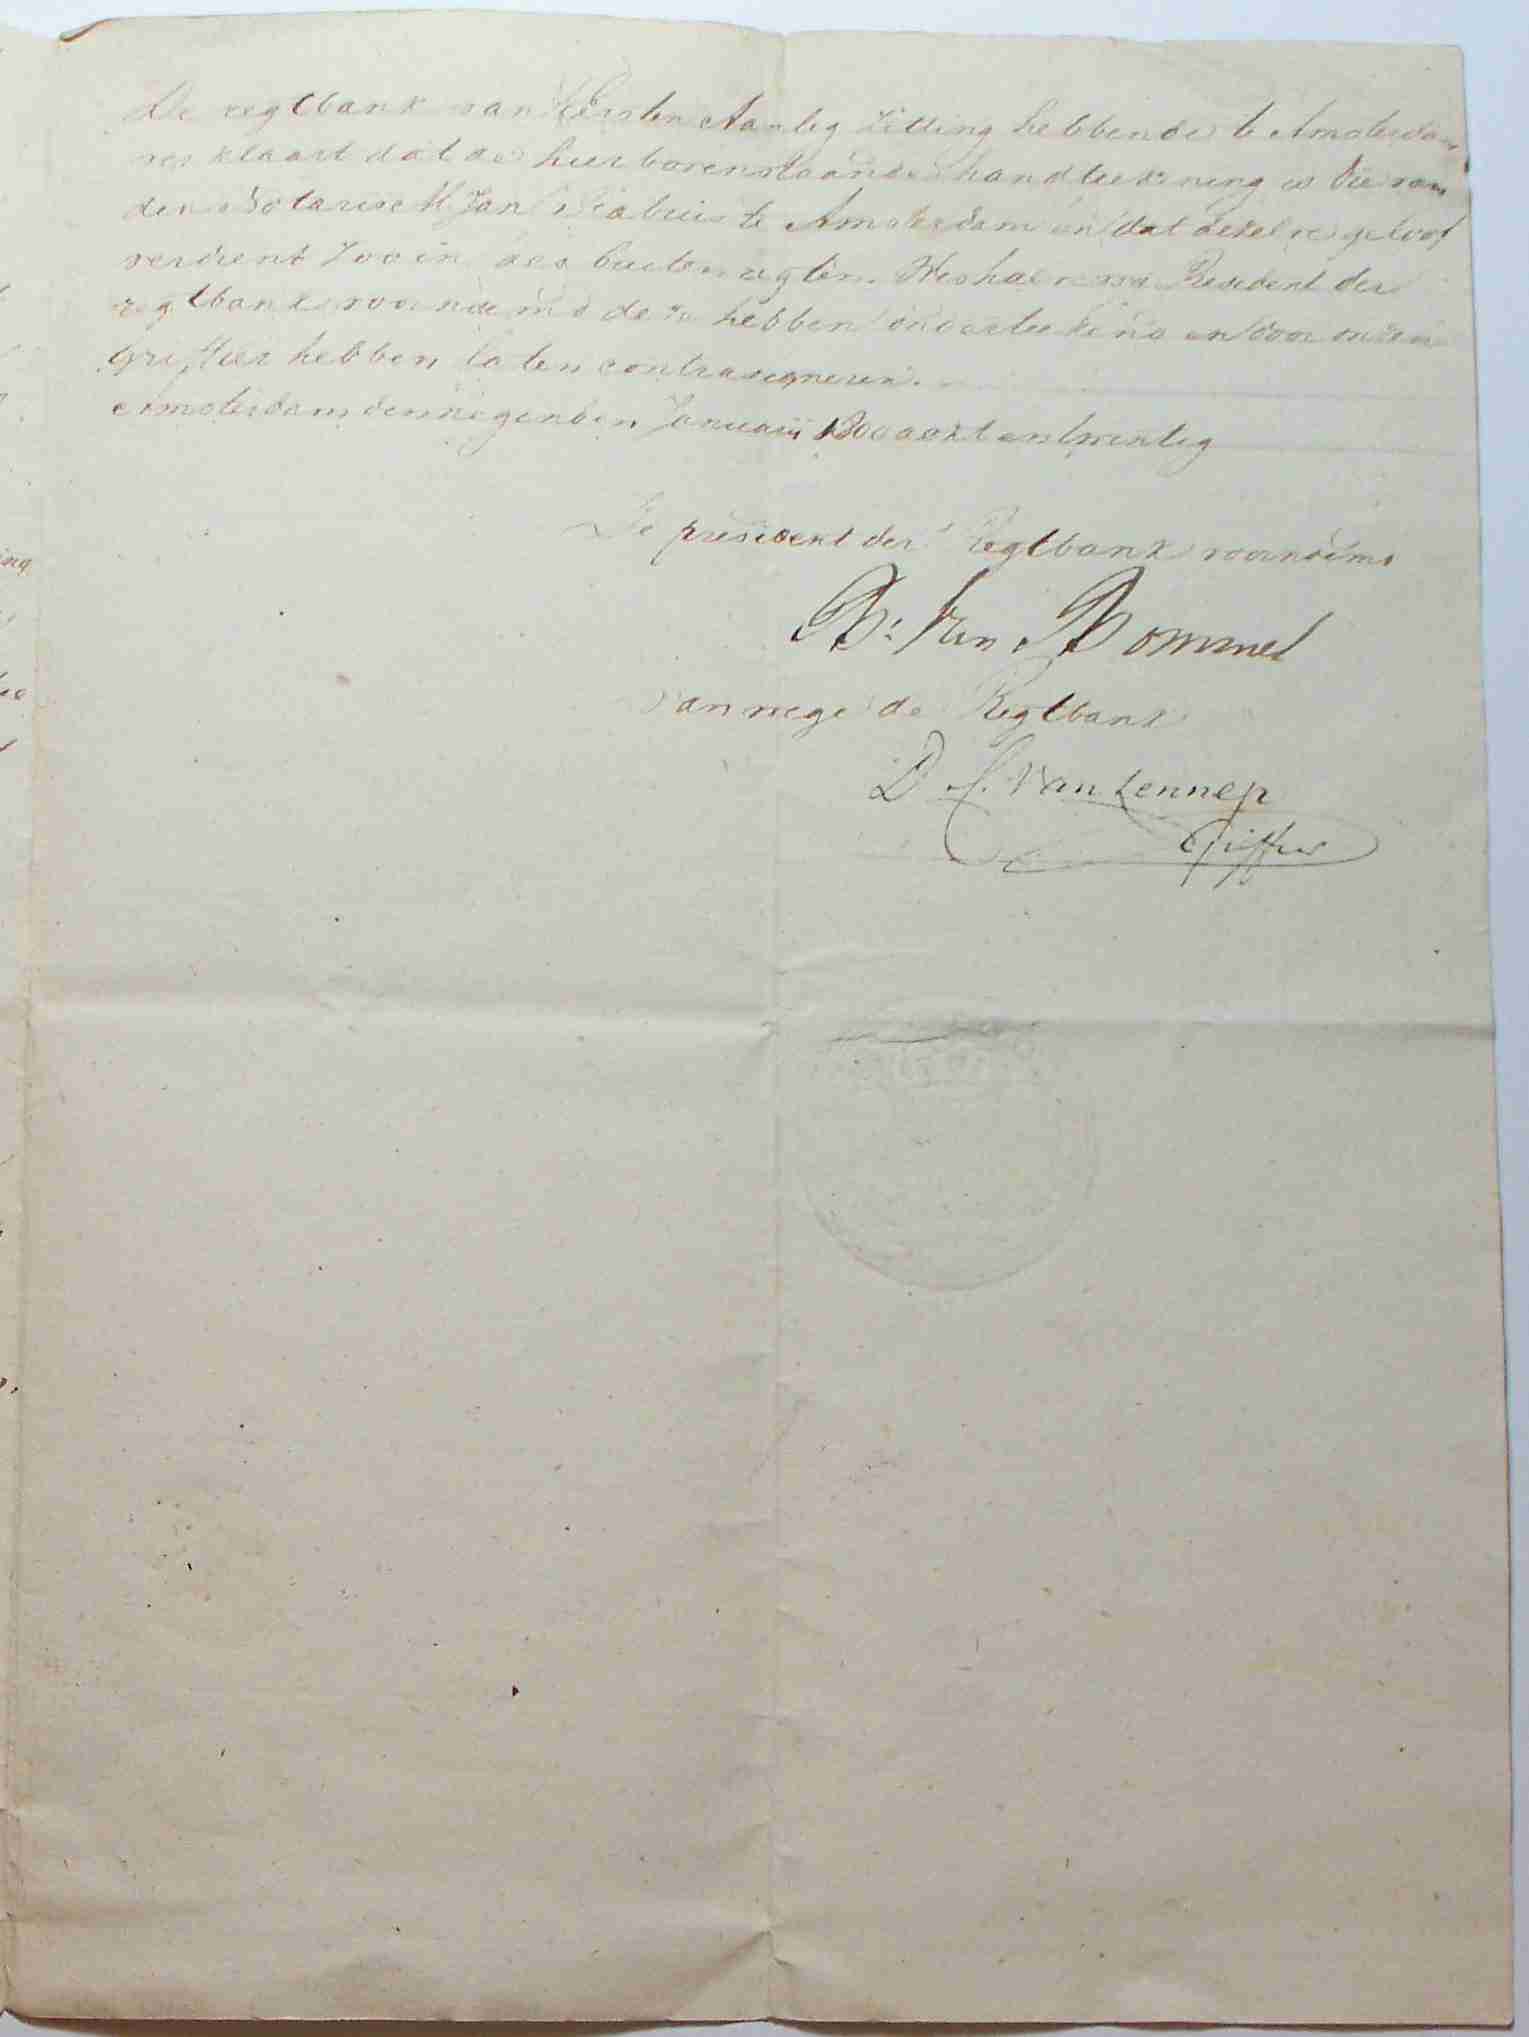 De regtbank van Eersten Aanleg Zitting hebbende te Amsterdam
verklaart dat de hier bovenstaande handteekening is die van
den Notaris M Jan te Amsterdam en dat dezelve geloof
verdient zoo in als buiten regten. Weshalve wij President der
regtbank voornoemd deze hebben onderteekend en door onzen
Griffier hebben laten contrasigneren.
Amsterdam den negenden Januarij 1800 acht en twintig
De president der Regtbank voornoemd
B: Van Bommel
Van wege de Regtbank
D. C. Van Lennep
Griffier